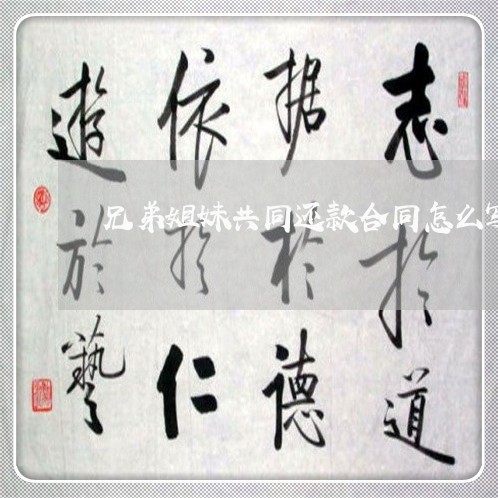 志於道
据於德
依於仁
遊於藝
兄弟姐妹共同还款合同怎么写